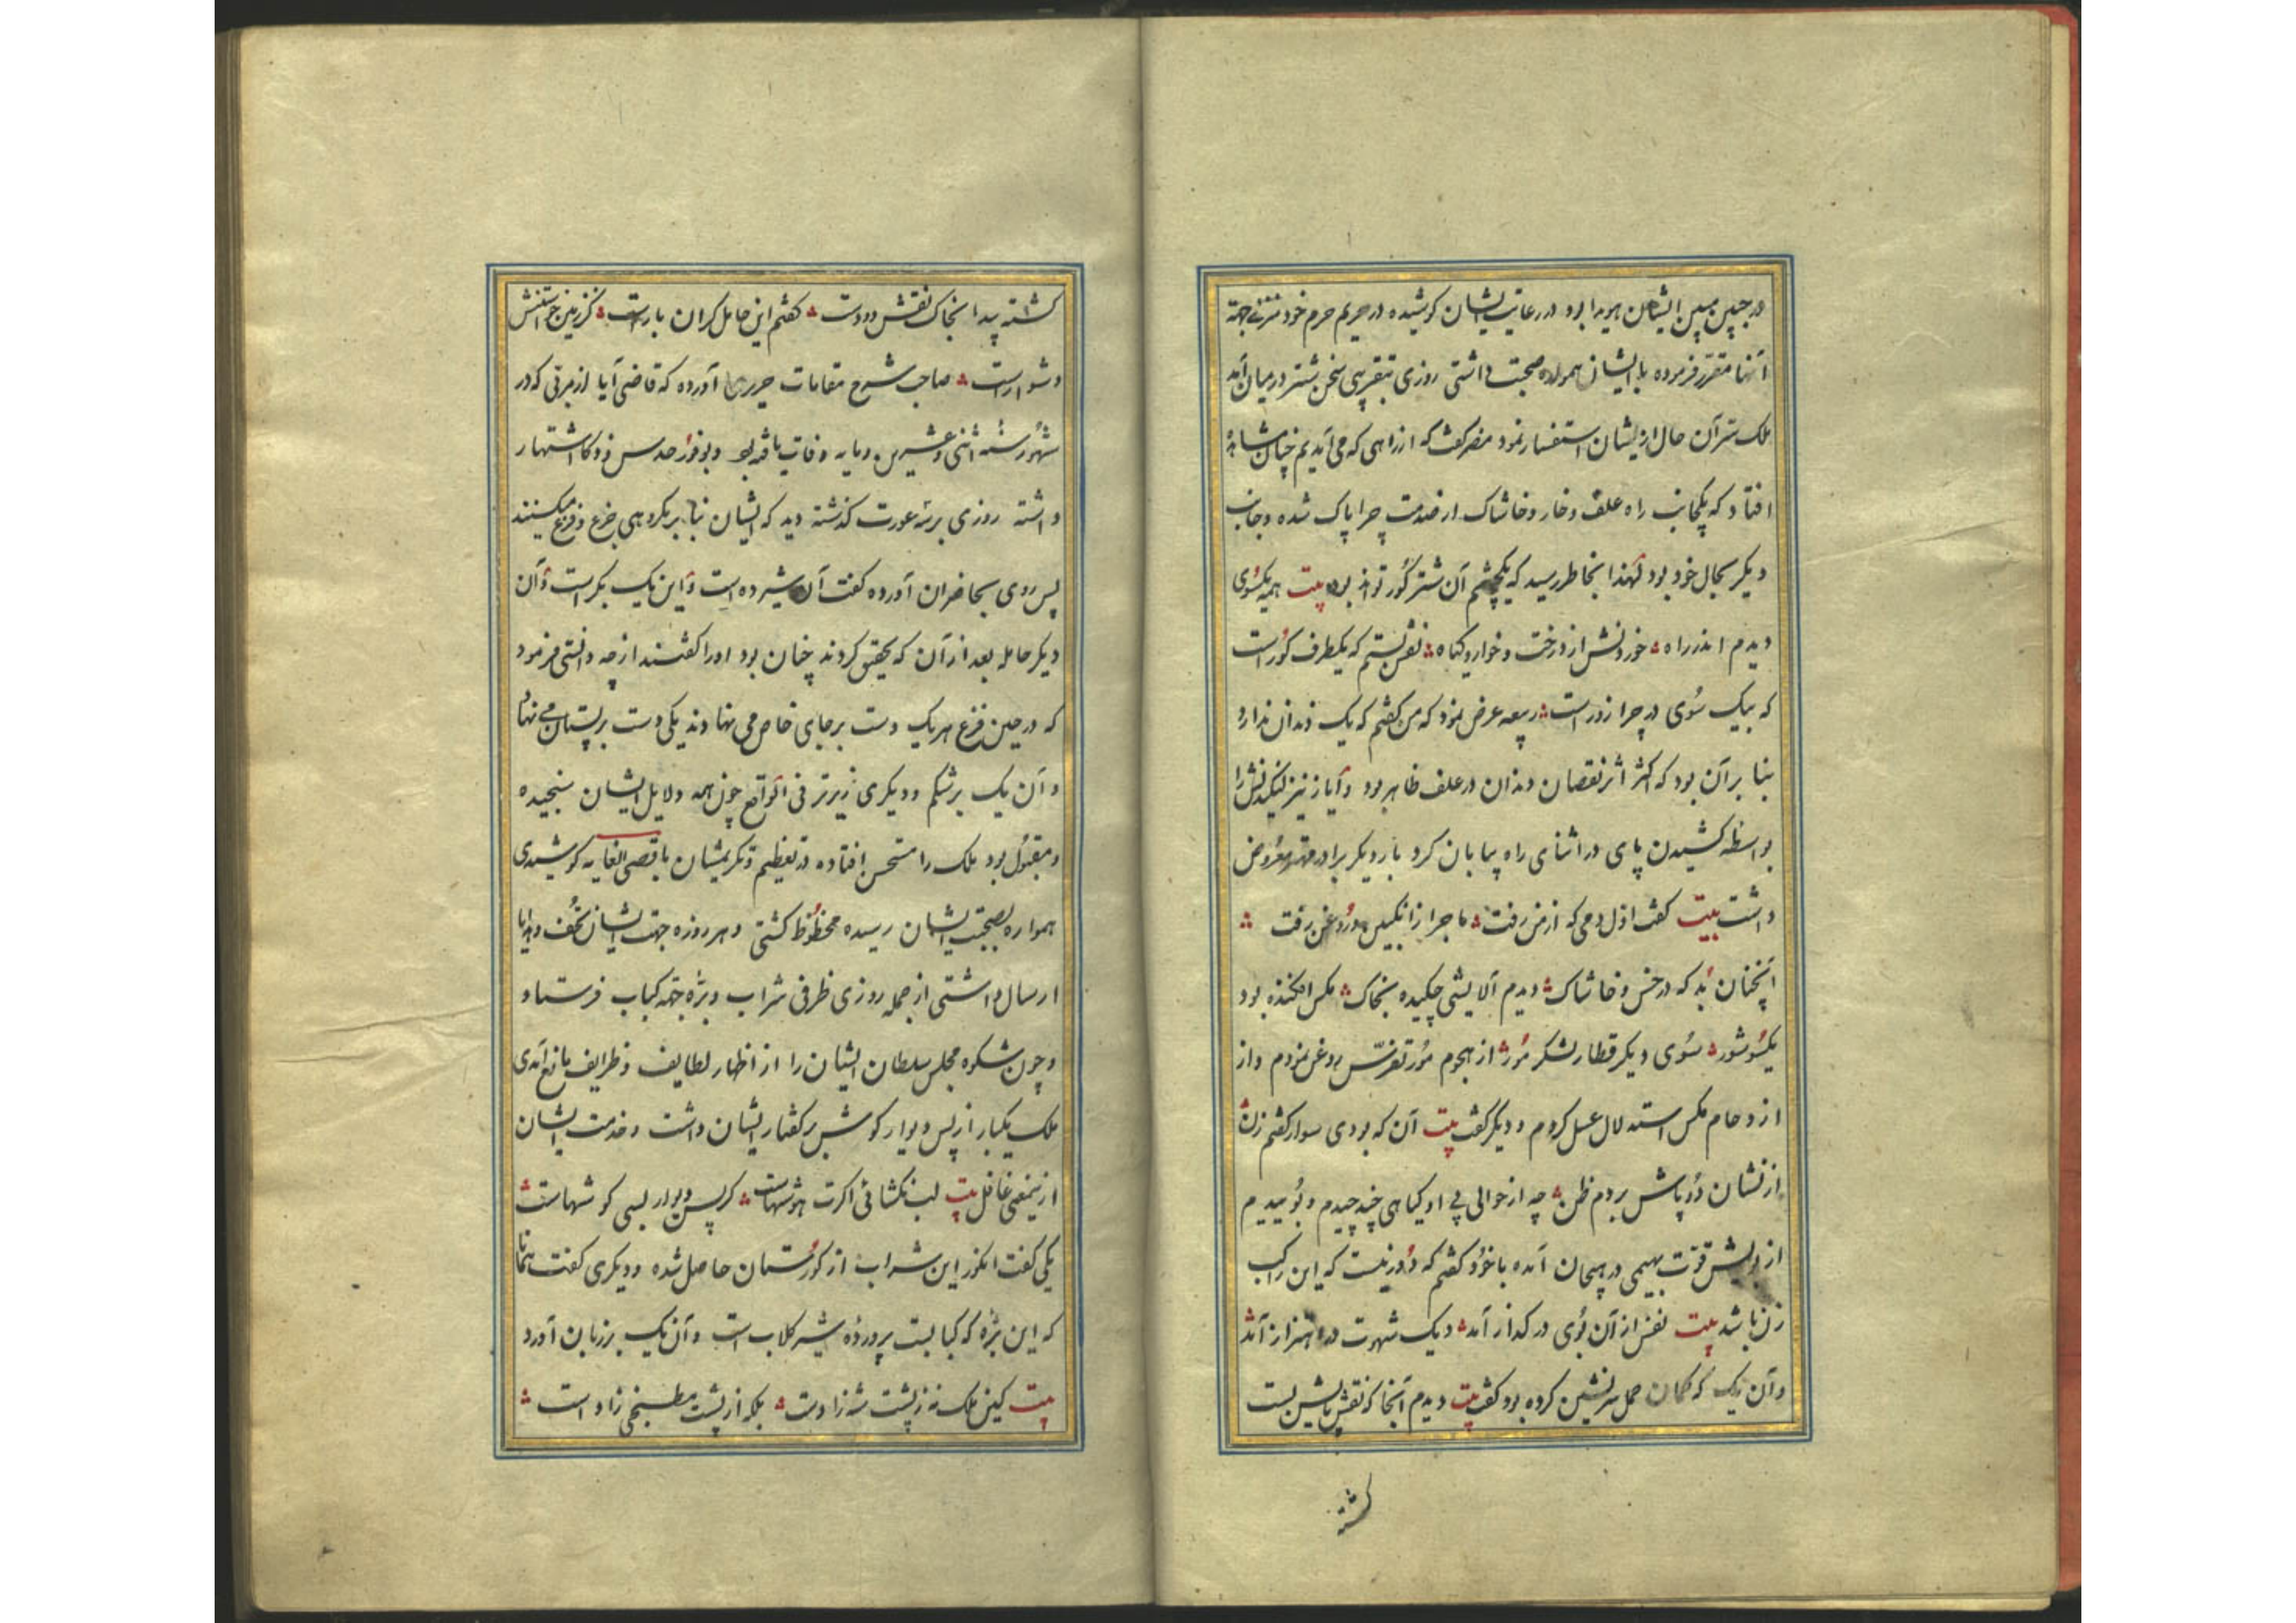 در جبین مبین ایشان هویدا بود در رعایت ایشان کوشیده در حریم حرم خود منزلی جهة
آنها مقرر فرموده با ایشان همواره صحبت داشتی روزی بتقریبی سخن شتر در میان آمد
ملک سرّ آن حال از ایشان استفسار نمود مضر کفت که از راهی که می آمدیم چنان مشاهده
افتاد که یکجانب راه علف و خار و خاشاک از صدمت چرا پاک شده و جانب
دیکر بحال خود بود لهذا بخاطر رسید که یکچشم آن شتر کور تواند بود بیت همه یکسوی
دیدم اندر راه خوردنش از درخت و خار و کیاه نقش بستم که یکطرف کور است
که بیک سوی در چرا زور است ربیعه عرض نمود که من کفتم که یک دندان ندارد
بنا بر آن بود که اکثر اثر نقصان دندان در علف ظاهر بود و آیاز نیز لنکیدنش را
بواسطه کشیدن پای در اثنای راه پیمایان کرد بار دیکر برادر مهتر معروض
داشت بیت کفت اول دمی که از من رفت ماجرا ز انکبین و روغن رفت
آنچنان بد که در خس و خاشاک دیدم آلایشی چکیده بخاک مکس افکنده بود
یکسو شور سوی دیکر قطار لشکر مور از هجوم مور تفرّس روغن نمودم و از
ازدحام مکس استدلال عسل کردم و دیکر کفت بیت آن که بودی سوار کفتم زن
از نشان دو پاش بردم ظن چه از حوالی پی او کیاهی چند چیدم و بوییدم
از بویش قوّت بهیمی در هیجان آمده با خود کفتم که دور نیست که این راکب
زن باشد بیت نفس از آن بوی در کداز آمد دیک شهوت در اهتزاز آمد
و آن یک که کمان حمل سرنشین کرده بود کفت بیت دیدم آنجا که نقش پایش بست
کشته
کشته پیدا بخاک نقش دو دست کفتم این حامل کران بار است کز زمین خواستنش
دشوار است صاحب شرح مقامات حریری آورده که قاضی آیاز از مزنی که در
شهور سنه اثنی و عشرین و مایه وفات یافته بود و بوفور حدس و ذکا اشتهار
داشته روزی بر سه عورت کذشته دید که ایشان بنابر مکروهی جزع و فزع میکنند
پس روی بحاضران آورده کفت آن شیرده است و این یک بکر است و آن
دیکر حامله بعد از آن که تحقیق کردند چنان بود او را کفتند از چه دانستی فرمود
که در حین فزع هر یک دست بر جای خاص می نهادند یکی دست بر پستان می نهاد
و آن یک بر شکم و دیکری زیرتر فی الواقع چون همه دلایل ایشان سنجیده
و مقبول بود ملک را مستحسن افتاده در تعظیم و تکریمشان باقصی الغایه کوشیدی
همواره بصحبت ایشان رسیده محظوظ کشتی و هر روزه جهت ایشان تحف و هدایا
ارسال داشتی از جمله روزی ظرفی شراب و برّه جهة کباب فرستاد
و چون شکوه مجلس سلطان ایشان را از اظهار لطایف و ظرایف مانع آمدی
ملک یکبار از پس دیوار کوش بر کفتار ایشان داشت و خدمت ایشان
ازینمعنی غافل بیت لب نکشائی اکرت هوشهاست کز پس دیوار بسی کوشهاست
یکی کفت انکور این شراب از کورستان حاصل شده و دیکری کفت همانا
که این برّه که کبابست پرورده شیر کلاب است و آن یک بر زبان آورد
بیت کین ملک نه ز پشت شه زادست بلکه از پشت مطبخی زاد است